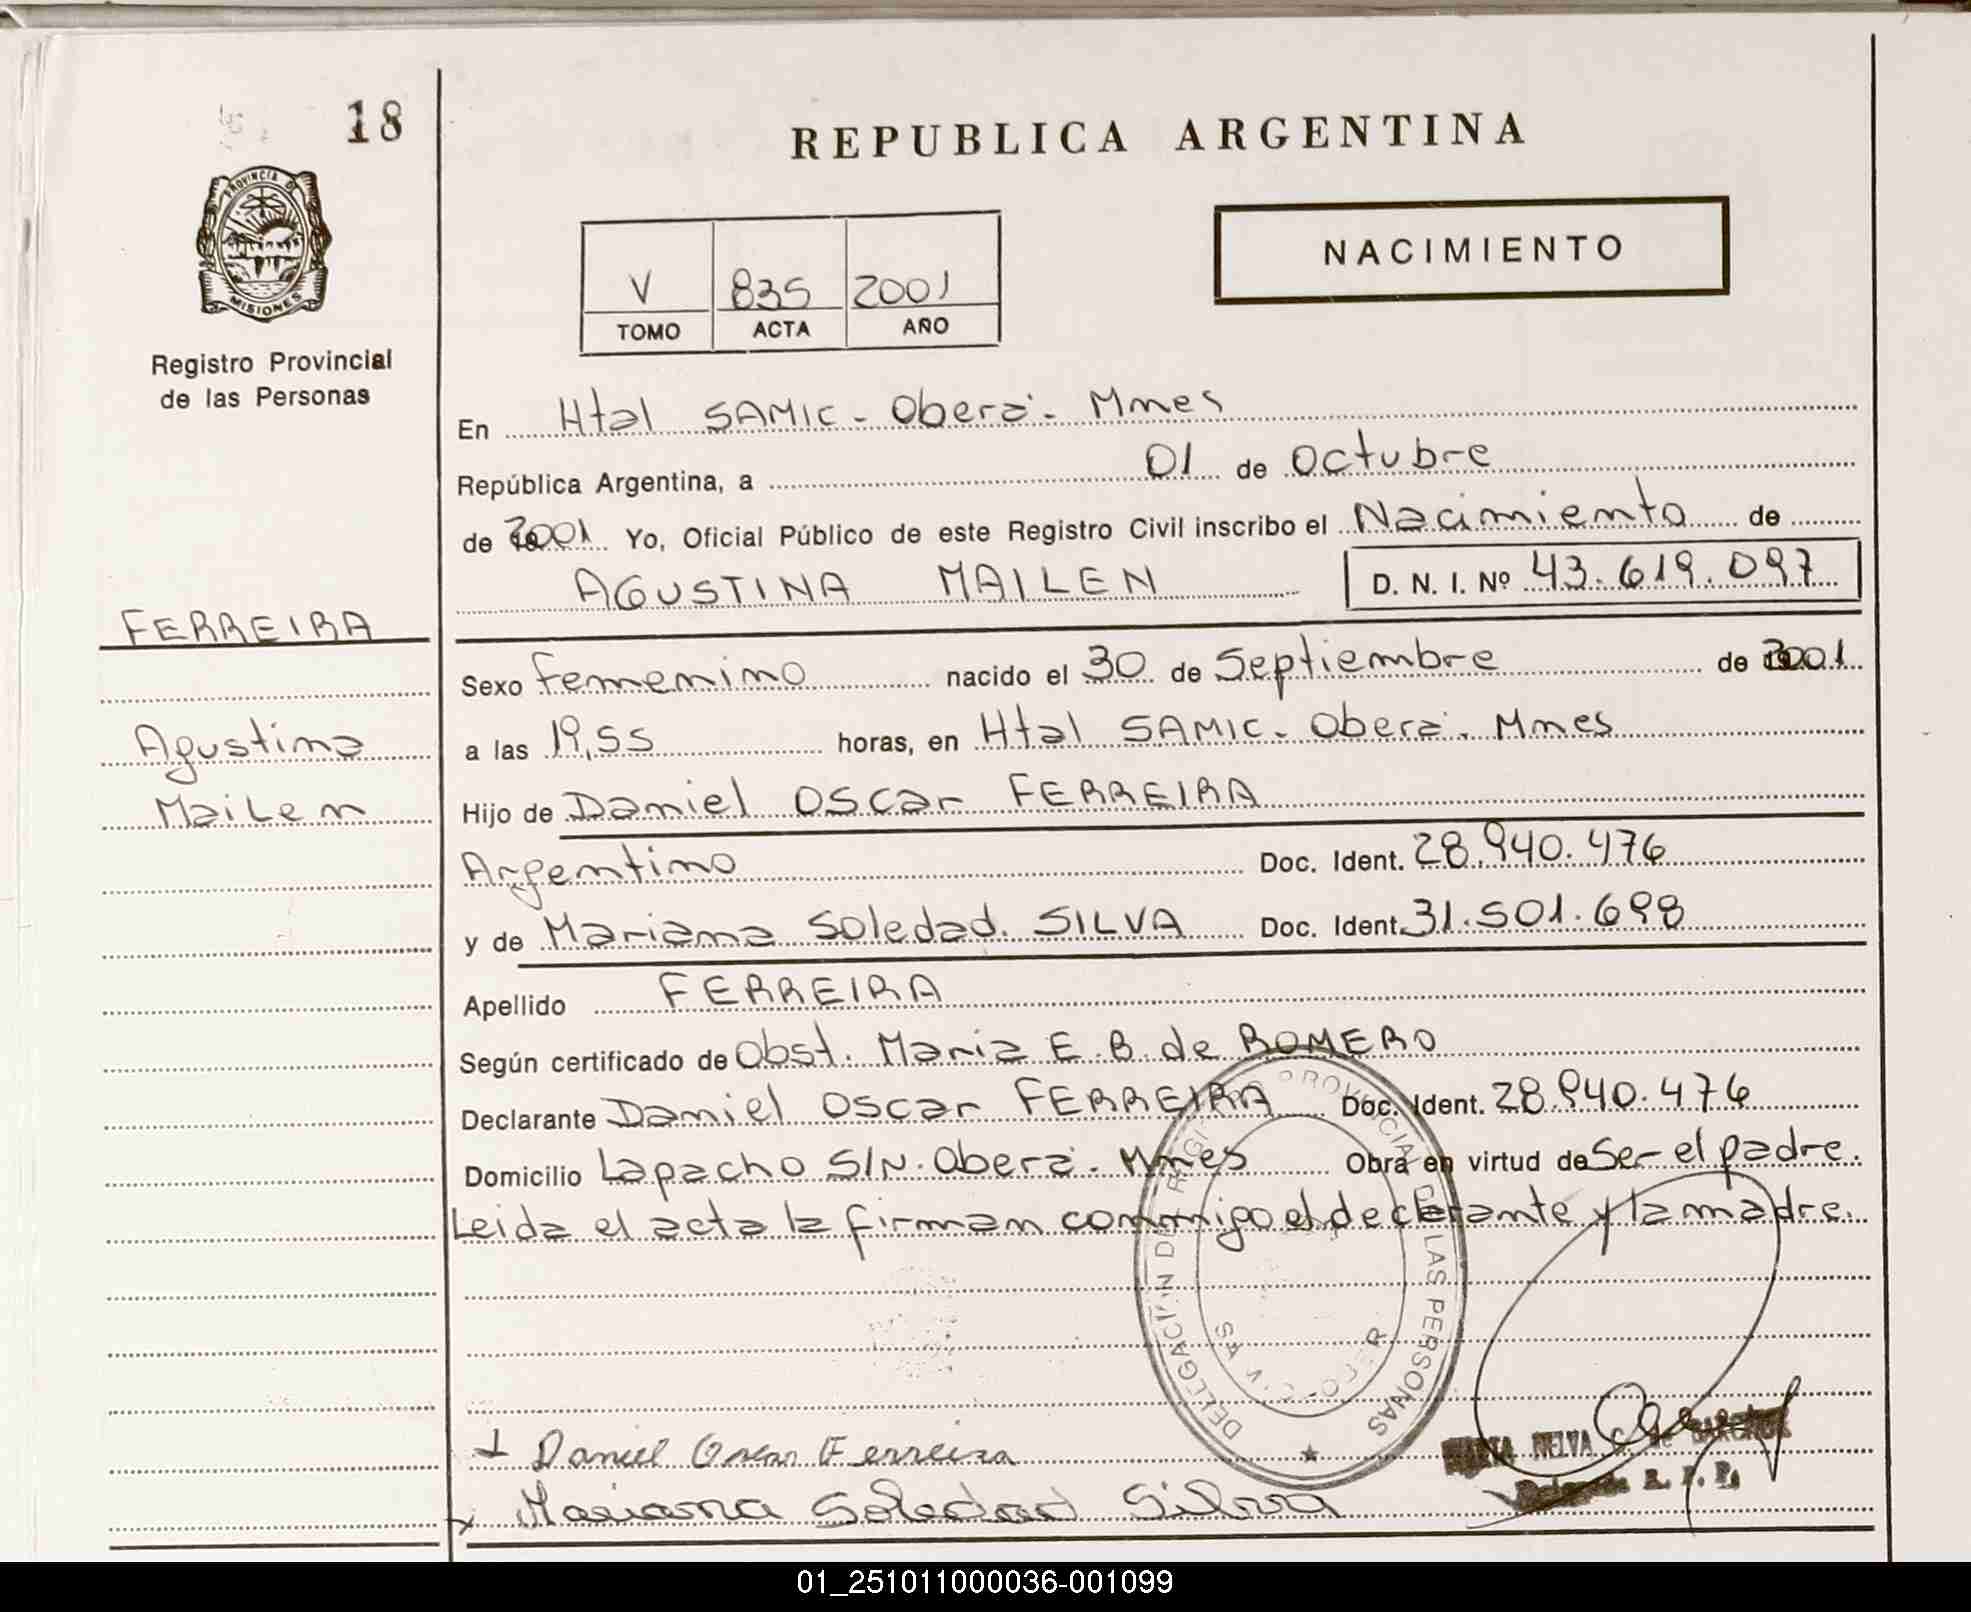 18
REPUBLICA ARGENTINA
PROVINCIA DE
MISIONES
Registro Provincial
de las Personas
NACIMIENTO
V 835 2001
TOMO ACTA AÑO
En Htal SAMIC - Oberá - Mnes
República Argentina, a 01 de Octubre
de 2001 Yo, Oficial Público de este Registro Civil inscribo el Nacimiento de
AGUSTINA MAILEN D. N. I. Nº 43.619.097
FERREIRA
Sexo femenino nacido el 30 de Septiembre de 2001
Agustina
Mailen
a las 19,55 horas, en Htal SAMIC - Oberá - Mnes
Hijo de Daniel Oscar FERREIRA
Argentino Doc. Ident. 28.940.476
y de Mariana Soledad SILVA Doc. Ident. 31.501.698
Apellido FERREIRA
Según certificado de Obst. Maria E. B. de ROMERO
Declarante Daniel Oscar FERREIRA Doc. Ident. 28.940.476
Domicilio Lapacho S/N. Oberá - Mnes Obra en virtud de Ser el padre.
Leida el acta la firman conmigo el declarante y la madre.
DELEGACION DEL REGISTRO PROVINCIAL DE LAS PERSONAS
Daniel Oscar Ferreira
Mariana Soledad Silva
MARTA NELVA
R. P. P.
01_251011000036-001099